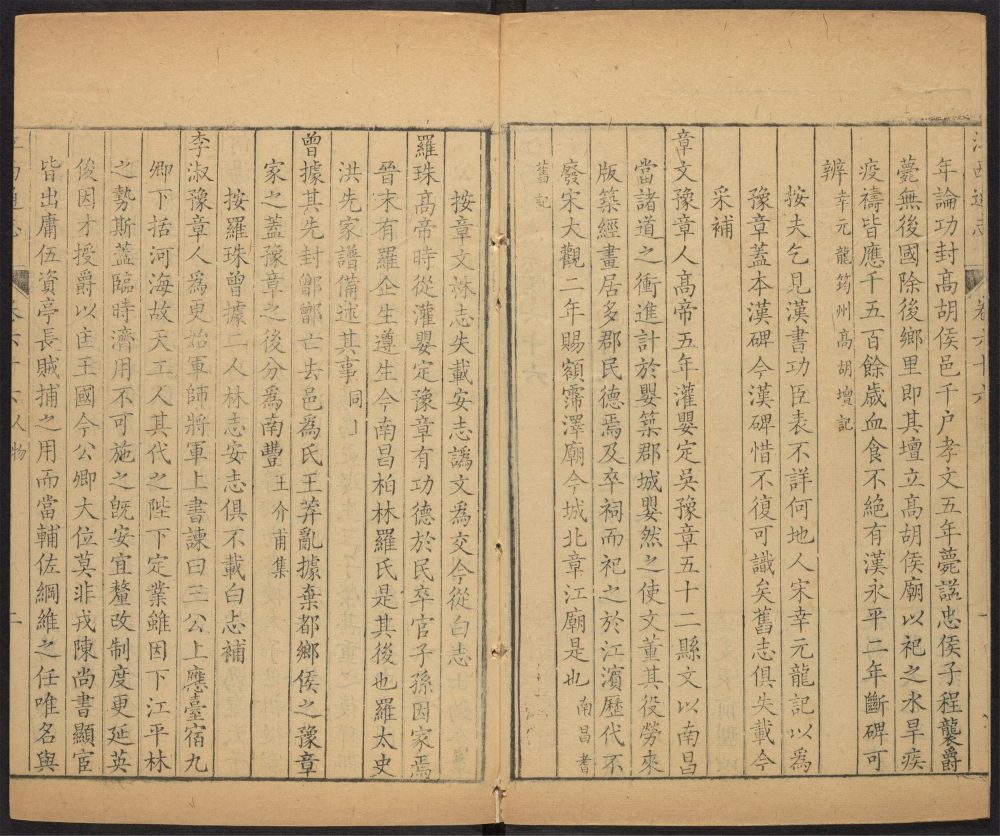 江西通志 卷六十六
年論功封髙胡侯邑千户孝文五年薨諡忠侯子程襲爵
薨無後國除後鄉里即其壇立髙胡侯廟以祀之水旱疾
疫禱皆應千五百餘歲血食不絶有漢永平二年斷碑可
辨幸元龍筠州髙胡壇記
按夫乞見漢書功臣表不詳何地人宋幸元龍記以爲
豫章蓋本漢碑今漢碑惜不復可識矣舊志俱失載今
采補
章文豫章人髙帝五年灌嬰定吳豫章五十二縣文以南昌
當諸道之衝進計於嬰築郡城嬰然之使文董其役勞來
版築經畫居多郡民德焉及卒祠而祀之於江濵歷代不
廢宋大觀二年賜額霈澤廟今城北章江廟是也南昌耆
舊記
按章文林志失載安志譌文爲交今從白志
羅珠髙帝時從灌嬰定豫章有功德於民卒官子孫因家焉
晉末有羅企生遵生今南昌柏林羅氏是其後也羅太史
洪先家譜備述其事同上
曾據其先封鄫鄫亡去邑爲氏王莽亂據棄都鄉侯之豫章
家之蓋豫章之後分爲南豐王介甫集
按羅珠曾據二人林志安志俱不載白志補
李淑豫章人爲更始軍師將軍上書諫曰三公上應臺宿九
卿下括河海故天工人其代之陛下定業雖因下江平林
之勢斯蓋臨時濟用不可施之旣安宜釐改制度更延英
俊因才授爵以匡王國今公卿大位莫非戎陳尚書顯宦
皆出庸伍資亭長賊捕之用而當輔佐綱維之任唯名與
卷六十六人物 二